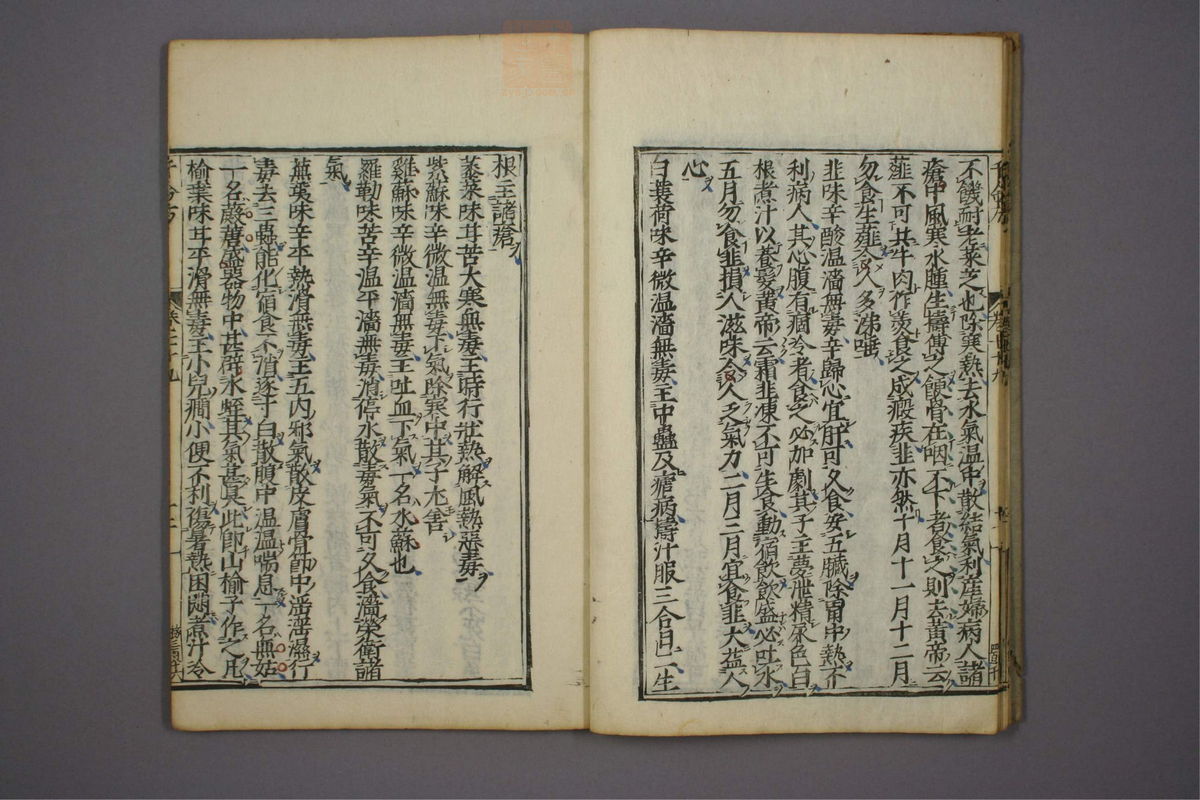 不饑耐老菜芝也除寒熱去水氣温中散結氣利産婦病人諸
瘡中風寒水腫生擣傅之鯁骨在咽不下者食之則去黄帝云
薤不可共牛肉作羮食之成瘕疾韭亦然十月十一月十二月
勿食生薤令人多涕唾
韭味辛酸温濇無毒辛歸心宜肝可久食安五臟除胃中熱不
利病人其心腹有痼冷者食之必加劇其子主夢泄精尿色白
根煮汁以養髮黄帝云霜韭凍不可生食動宿飲飲盛必吐水
五月勿食韭損人滋味令人乏氣力二月三月宜食韭大益人
心
白蘘荷味辛微温濇無毒主中蠱及瘧病擣汁服三合日二生
根主諸瘡
菾菜味甘苦大寒無毒主時行壯熱解風熱惡毒
紫蘇味辛微温無毒下氣除寒中其子尤善
雞蘇味辛微温濇無毒主吐血下氣一名水蘇也
羅勒味苦辛温平濇無毒消停水散毒氣不可久食濇榮衛諸
氣
蕪荑味辛平熱滑無毒主五内邪氣散皮膚骨節中淫淫濕行
毒去三蟲能化宿食不消逐寸白散腹中温温喘息一名無姑
一名䕋䕮盛器物中甚辟水蛭其氣甚臭此即山榆子作之凡
榆葉味甘平滑無毒主小兒癇小便不利傷暑熱困悶煮汁冷